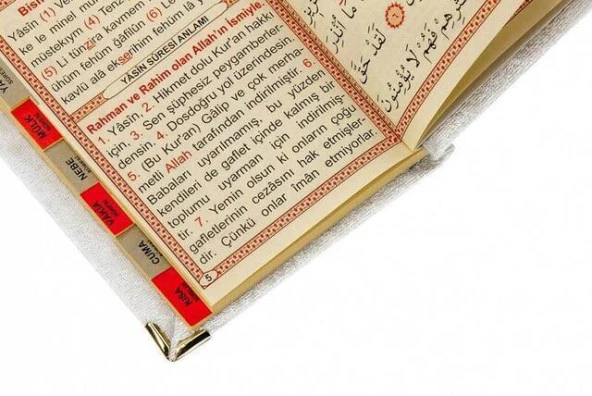 Yâsîn (1) Ve
ke le minel mu
müstekıym (4) Tenz
(5) Li tünzira kavmem
ühüm feh﻿üm ğâfilûn (6) Le
kavlü alâ ekserihim fehüm lâ
YÂSİN SÛRESİ ANLAMI
Rahman ve Rahim olan Allah'ın İsmiyle.
1. Yâsîn. 2. Hikmet dolu Kur'an hakkı
için. 3. Sen şüphesiz peygamberler-
densin. 4. Dosdoğru yol üzerindesin.
5. (Bu Kur'an) Gâlip ve çok merha-
metli Allah tarafından indirilmiştir. 6.
Babaları uyarılmamış, bu yüzden
kendileri de gaflet içinde kalmış bir
toplumu uyarman için indirilmiş-
tir. 7. Yemin olsun ki onların çoğu
gafletlerinin cezâsını hak etmişler-
dir. Çünkü onlar îmân etmiyorlar.
5
MÜLK
NEBE
VAKIA
CUMA
KISA
لَقَدْ حَقَّ
فَهُمْ لَا يُؤْمِنُونَ